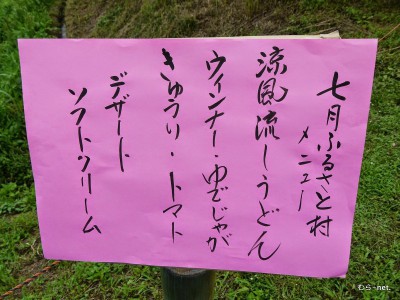 七月ふるさと村
メニュー
涼風流しうどん
ウィンナー・ゆでじゃが
きゅうり・トマト
デザート
ソフトクリーム